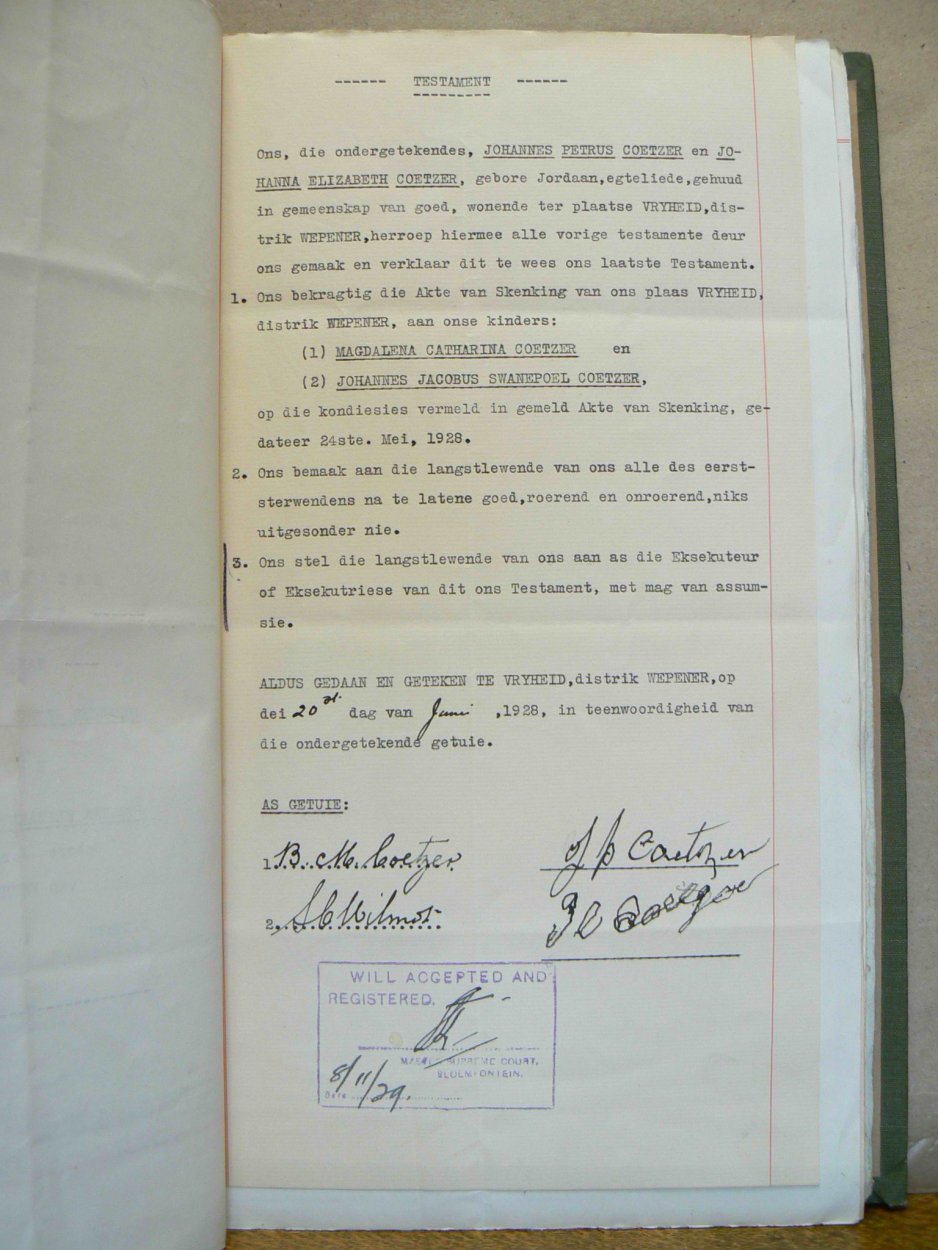 ------ TESTAMENT ------
Ons, die ondergetekendes, JOHANNES PETRUS COETZER en JO-
HANNA ELIZABETH COETZER, gebore Jordaan,egteliede,gehuud
in gemeenskap van goed, wonende ter plaatse VRYHEID,dis-
trik WEPENER,herroep hiermee alle vorige testamente deur
ons gemaak en verklaar dit te wees ons laatste Testament.
1. Ons bekragtig die Akte van Skenking van ons plaas VRYHEID,
distrik WEPENER, aan onse kinders:
(1) MAGDALENA CATHARINA COETZER en
(2) JOHANNES JACOBUS SWANEPOEL COETZER,
op die kondiesies vermeld in gemeld Akte van Skenking, ge-
dateer 24ste. Mei, 1928.
2. Ons bemaak aan die langstlewende van ons alle des eerst-
sterwendens na te latene goed,roerend en onroerend,niks
uitgesonder nie.
3. Ons stel die langstlewende van ons aan as die Eksekuteur
of Eksekutriese van dit ons Testament, met mag van assum-
sie.
ALDUS GEDAAN EN GETEKEN TE VRYHEID,distrik WEPENER,op
dei 20st dag van Juni ,1928, in teenwoordigheid van
die ondergetekende getuie.
AS GETUIE:
1 B. M. Coetzer
J P Coetzer
2. Wilmot
WILL ACCEPTED AND
REGISTERED.
MASTER SUPREME COURT,
BLOEMFONTEIN.
Date 8/11/29.